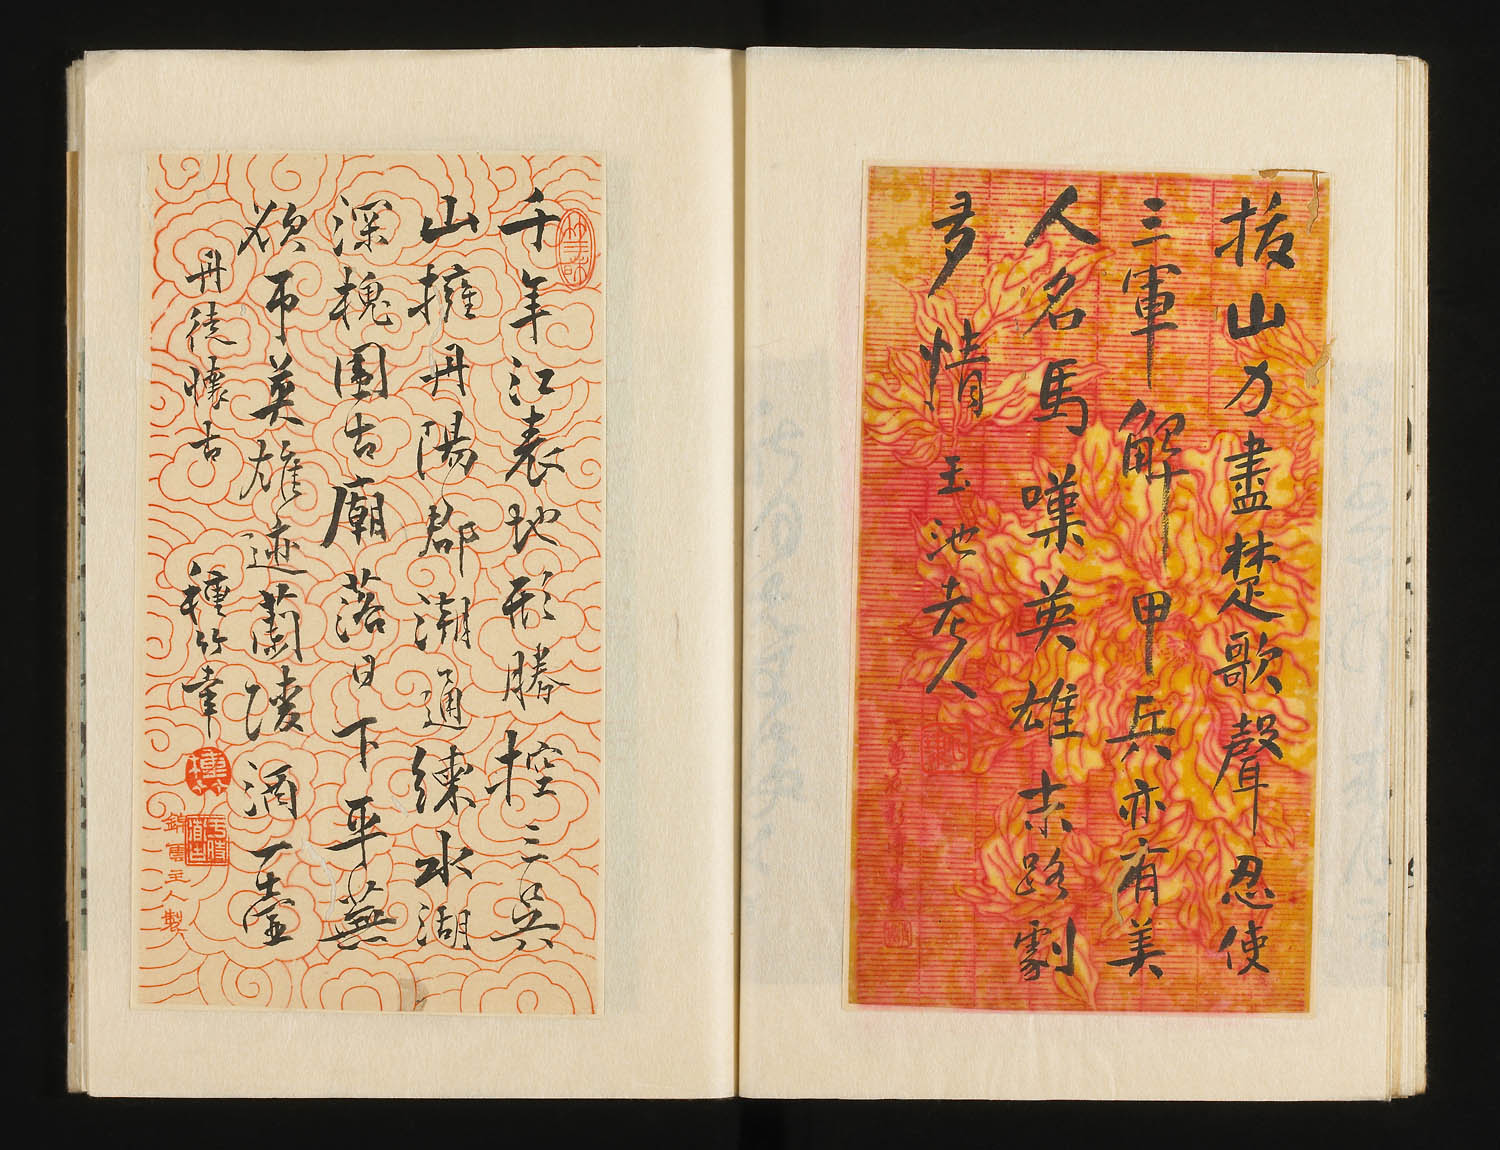 拔山力盡楚歌聲忍使
三軍解甲兵亦有美
人名馬嘆英雄末路劇
多情 玉池老人
千年江表地形勝控三吳
山擁丹陽郡潮通練水湖
深槐圍古廟落日下平蕪
欲弔英雄迹蘭陵酒一壺
丹徒懷古
種竹
錦雲主人製